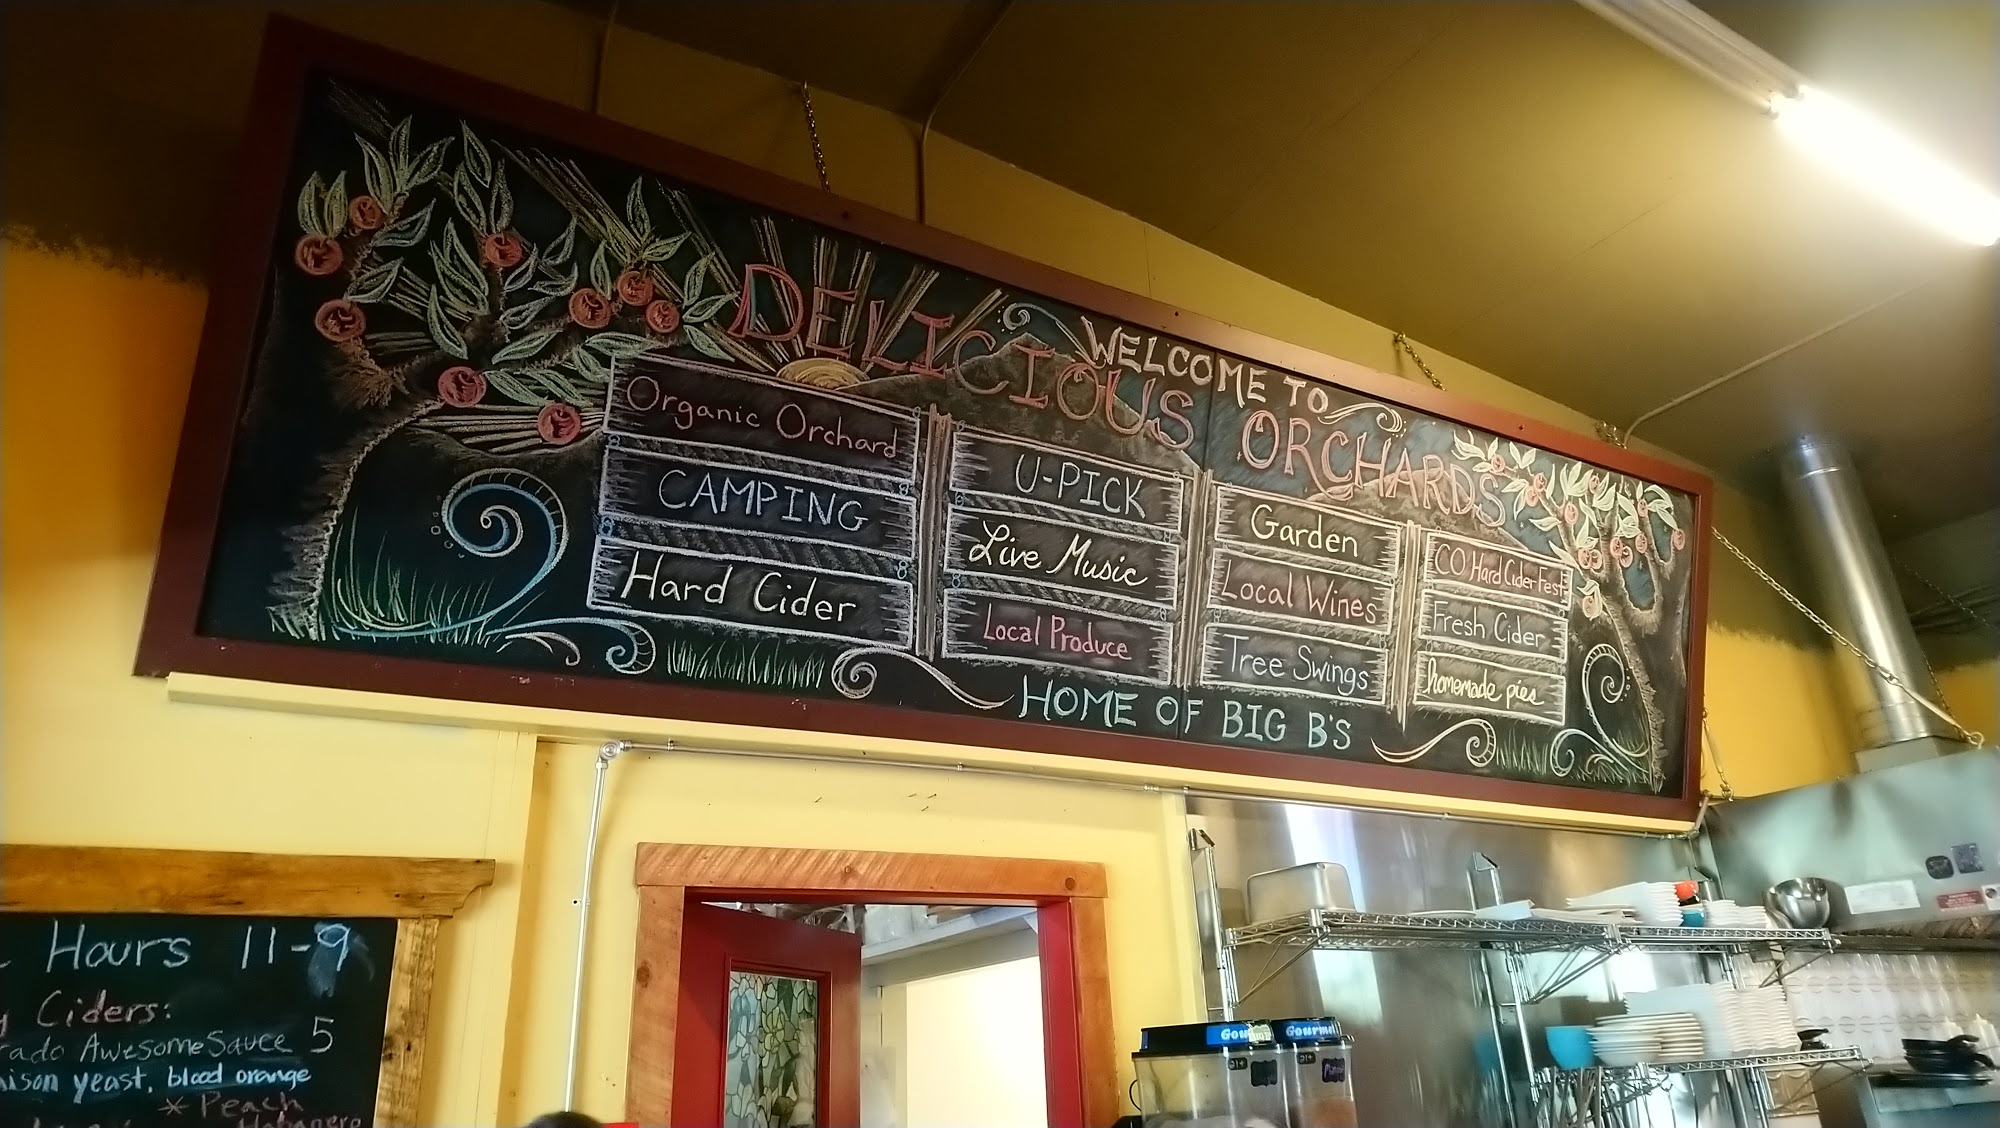 WELCOME TO
DELICIOUS ORCHARDS
Organic Orchard
CAMPING
Hard Cider
U-PICK
Live Music
Local Produce
Garden
Local Wines
Tree Swings
CO Hard Cider Fest
Fresh Cider
homemade pies
HOME OF BIG B'S
Hours 11-9
Ciders:
Awesome Sauce 5
yeast, blood orange
* Peach
Habanero
Gourmet